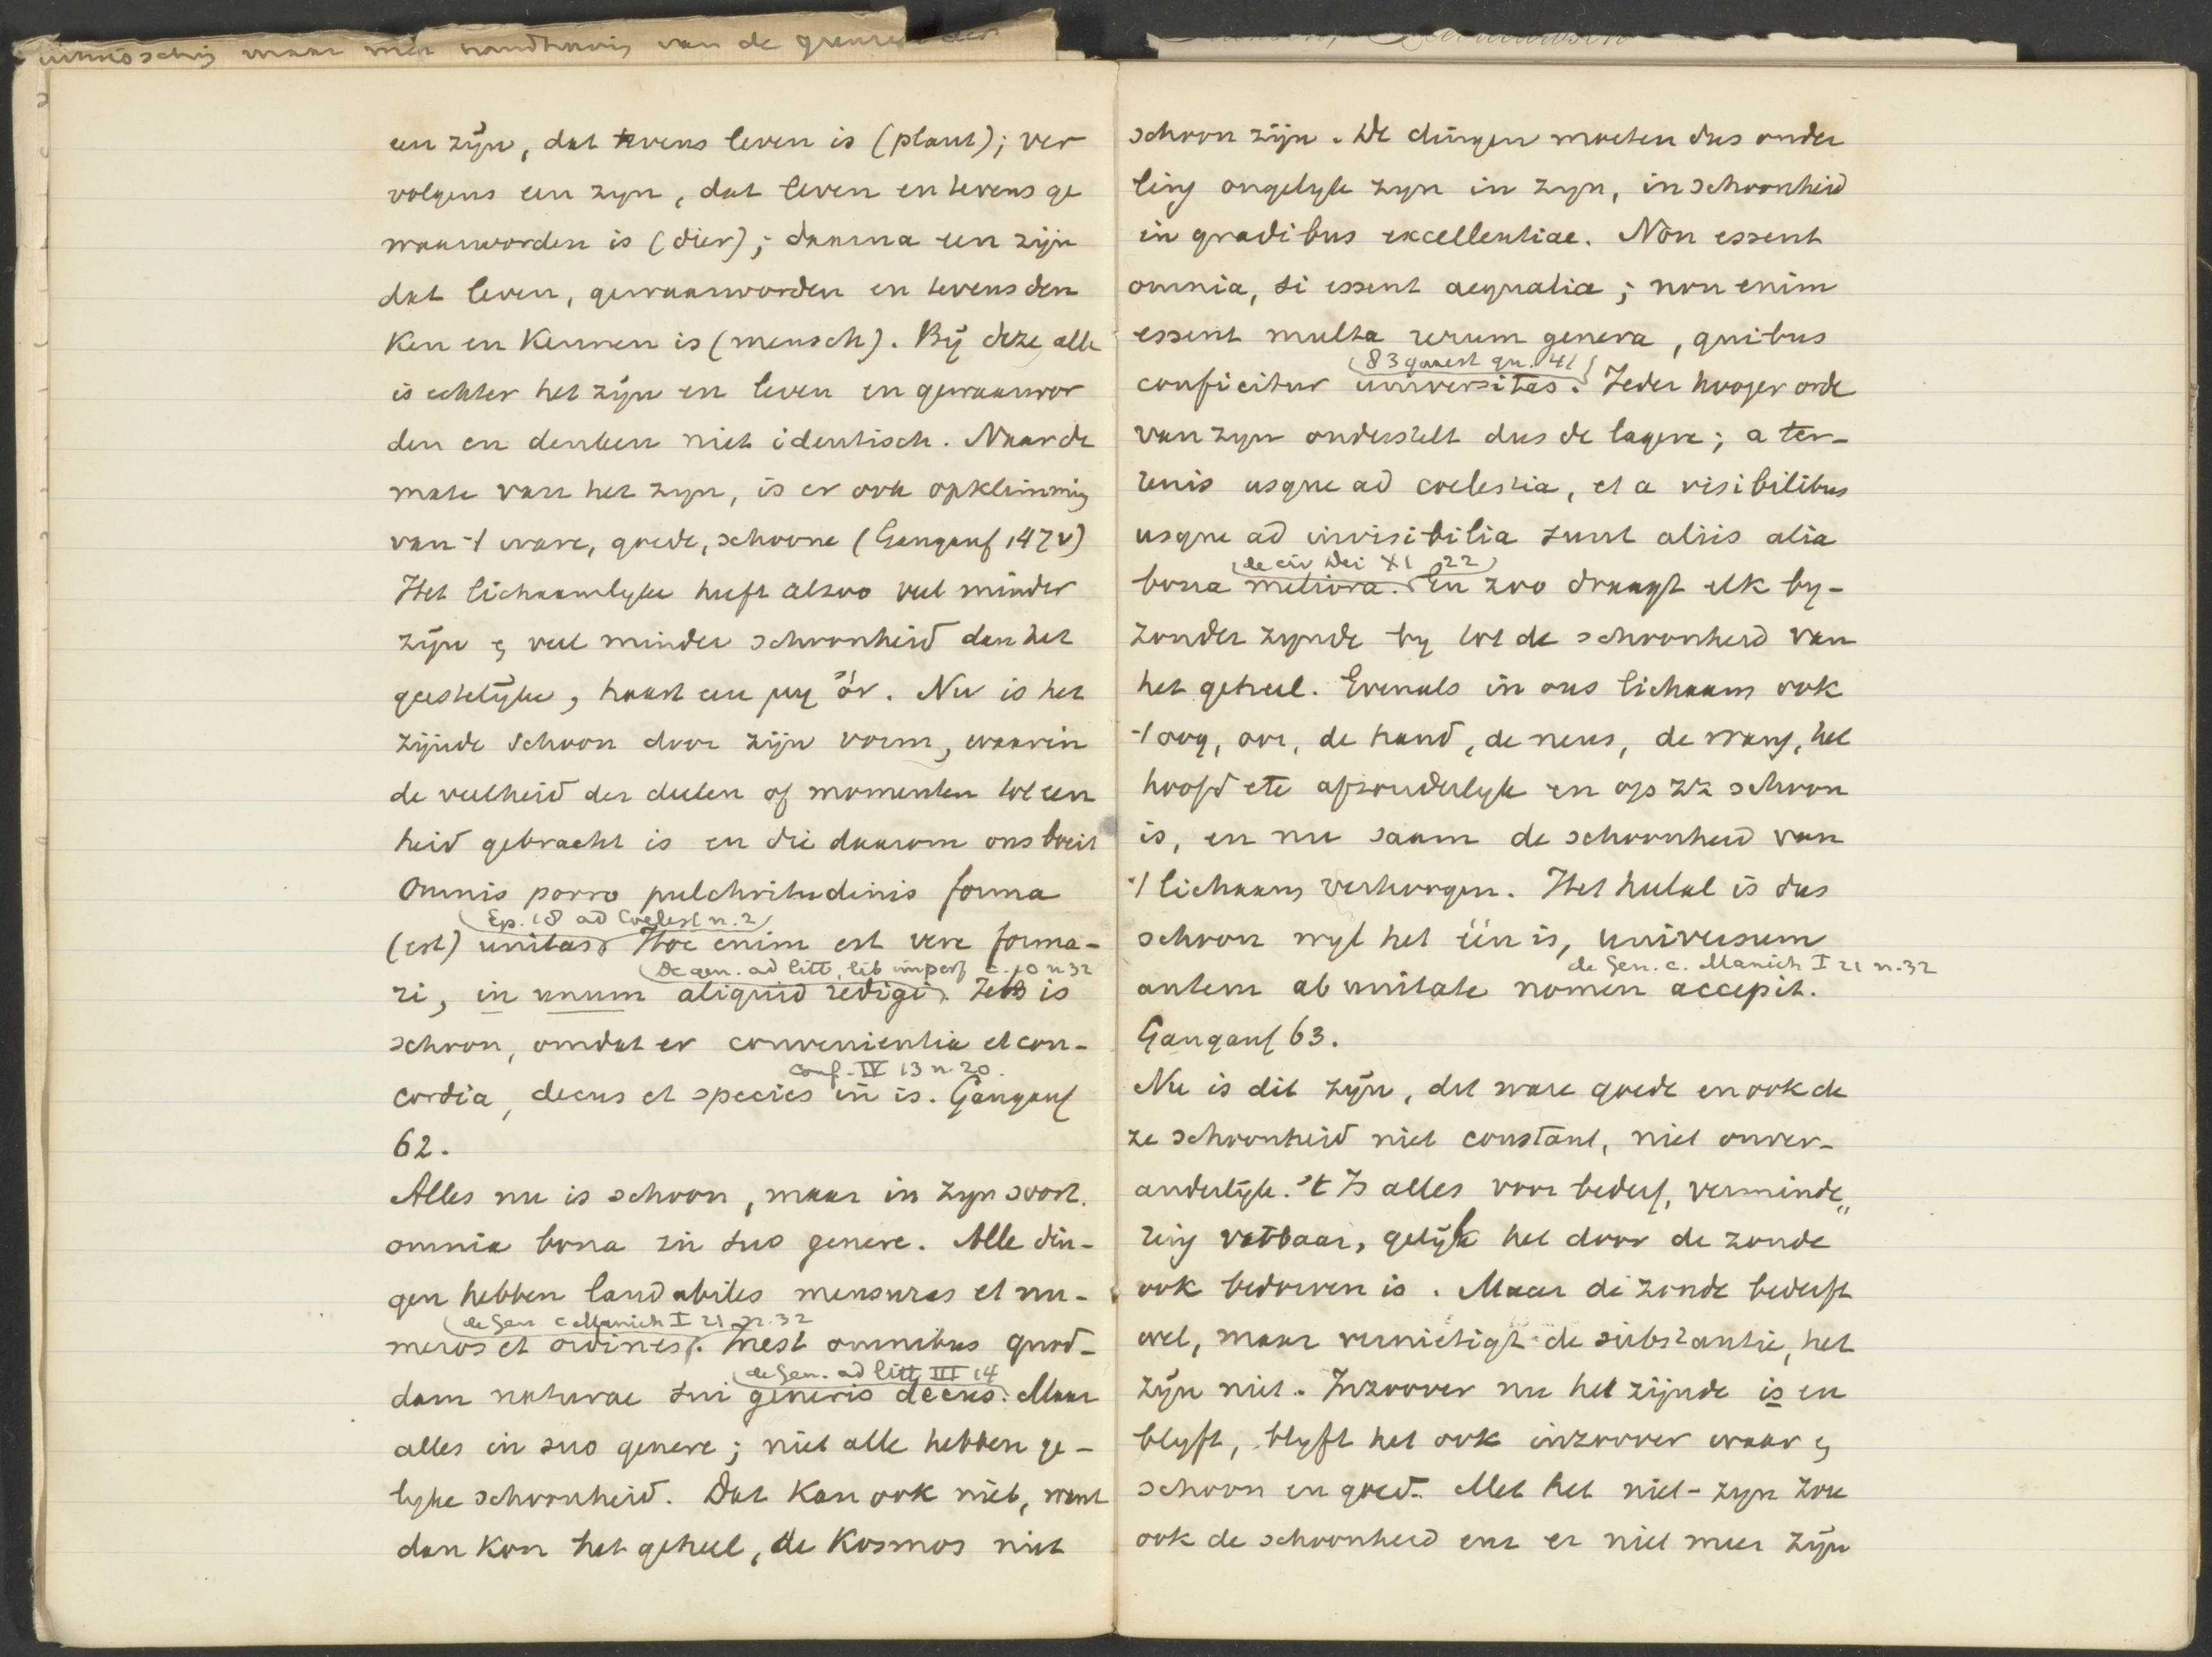 een zijn, dat tevens leven is (plant); ver
volgens een zyn, dat leven en tevens ge
waarworden is (dier); daarna een zijn
dat leven, gewaarworden en tevens den
ken en Kennen is (mensch). Bij deze alle
is echter het zijn en leven en gewaarwor
den en denken niet identisch. Naar de
mate van het zyn, is er ook opklimming
van 't ware, goede, schoone (Gangauf 147v)
Het lichaamlyke heeft alzoo veel minder
zijn & veel minder schoonheid dan het
geestelijke, haast een μη ὄν. Nu is het
zijnde schoon door zijn vorm, waarin
de veelheid der deelen of momenten tot een
heid gebracht is en die daarom ons boeit
Omnis porro pulchritudinis forma
(Ep. 18 ad Coelest n. 2)
(est) unitas. Hoc enim est vere forma-
(de gen. ad litt, lib imperf c. 10 n 32
ri, in unum aliquid redigi. Iets is
schoon, omdat er convenientia et con-
Conf. IV 13 n. 20.
cordia, decus et species in is. Gangauf
62.
Alles nu is schoon, maar in zyn soort.
omnia bona in suo genere. Alle din-
gen hebben laudabiles mensuras et nu-
(de Gen c Manich I 21 n. 32
meros et ordines. Inest omnibus quod-
(de Gen. ad litt III 14
dam naturae sui generis decus. Maar
alles in suo genere; niet alle hebben ge-
lyke schoonheid. Dat Kan ook niet, want
dan Kon het geheel, de Kosmos niet
schoon zijn. De dingen moeten dus onder
ling ongelyk zyn in zyn, in schoonheid
in gradibus excellentiae. Non essent
omnia, si essent aequalia; non enim
essent multa rerum genera, quibus
(83 quaest qu. 41)
conficitur universitas. Ieder hooger orde
van zyn onderstelt dus de lagere; a ter-
renis usque ad coelestia, et a visibilibus
usque ad invisibilia sunt aliis alia
(de civ Dei XI 22)
bona meliora. En zoo draagt elk by-
zonder zynde by tot de schoonheid van
het geheel. Evenals in ons lichaam ook
't oog, oor, de hand, de neus, de wang, het
hoofd etc afzonderlyk en op zz schoon
is, en nu saam de schoonheid van
't lichaam verhoogen. Het heelal is dus
schoon wyl het één is, universum
de Gen. c. Manich I 21 n. 32
autem ab unitate nomen accepit.
Gangauf 63.
Nu is dit zijn, dit ware goede en ook de
ze schoonheid niet constant, niet onver-
anderlijk. 't Is alles voor bederf, verminde„
ring vatbaar, gelijk het door de zonde
ook bedorven is. Maar de zonde bederft
wel, maar vernietigt de substantie, het
zijn niet. Inzoover nu het zijnde is en
blyft, blyft het ook inzoover waar &
schoon en goed. Met het niet-zyn zou
ook de schoonheid enz er niet meer zijn